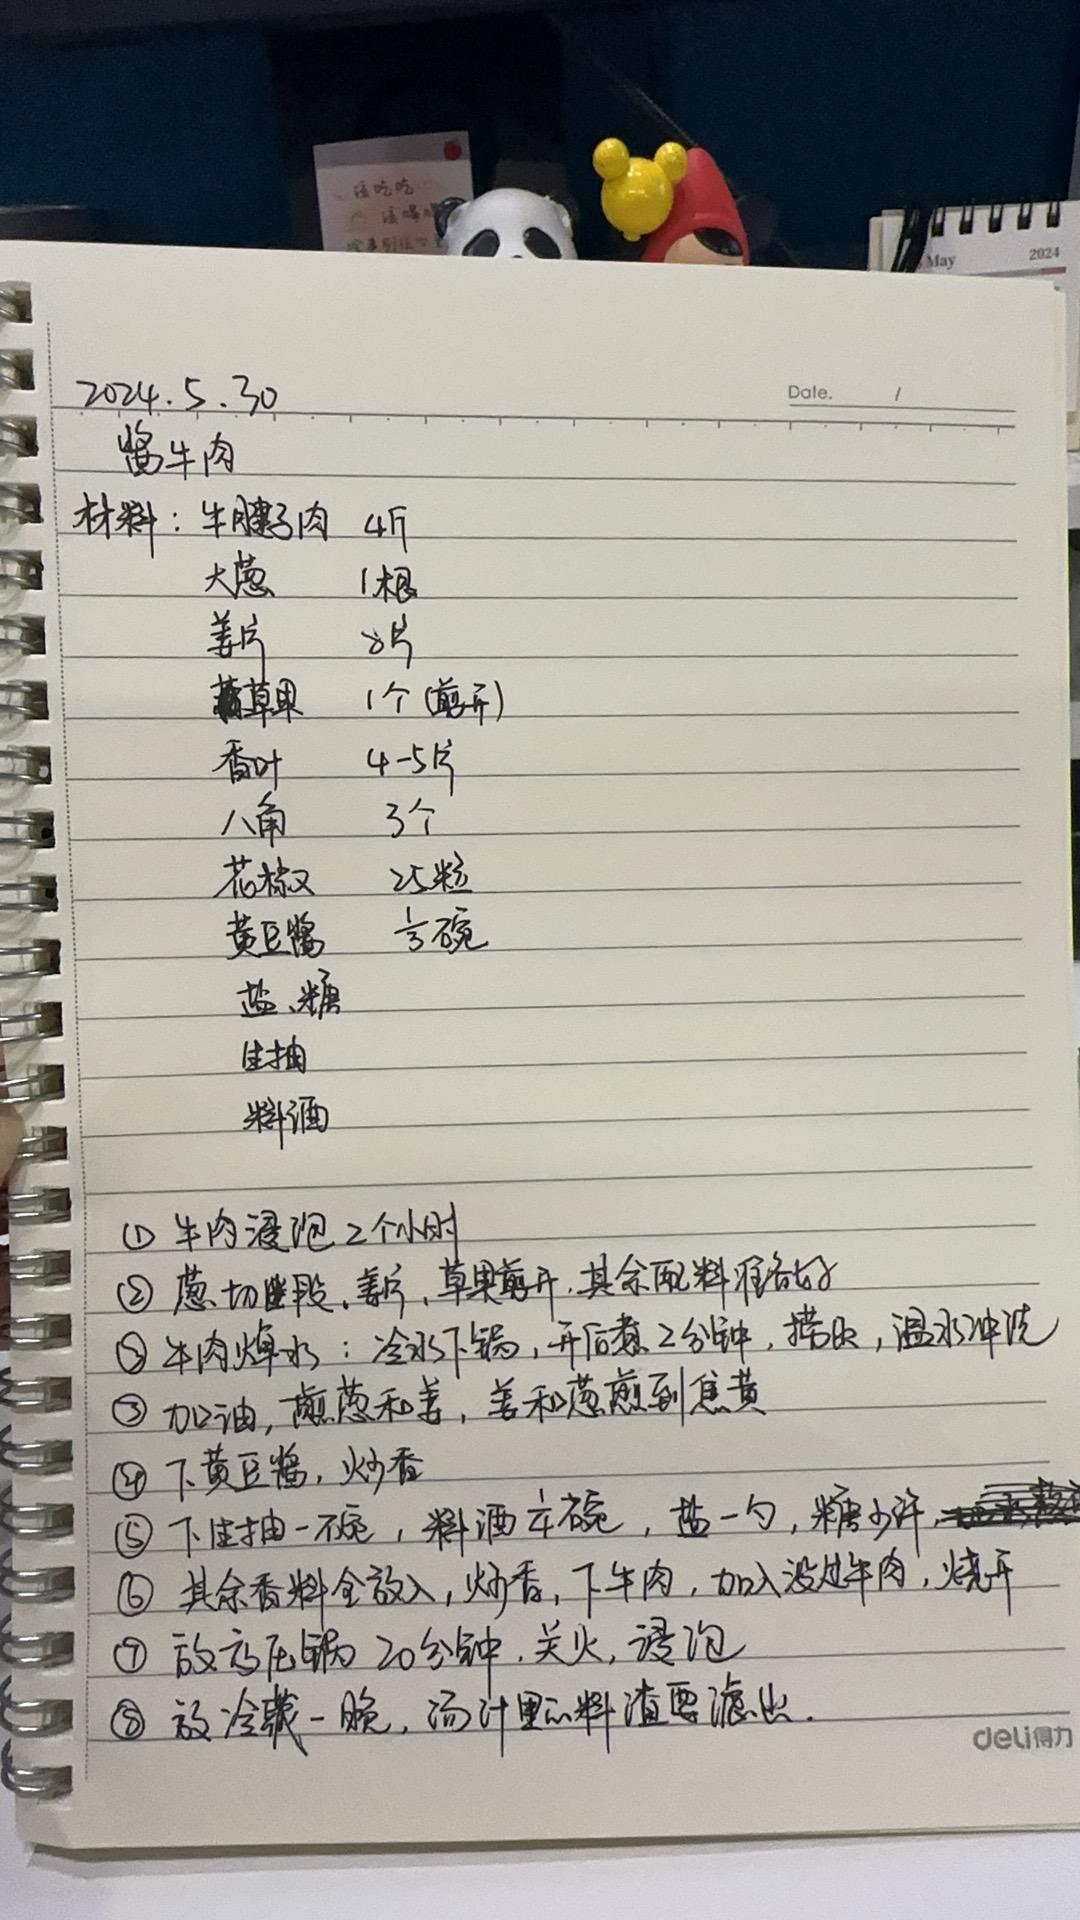 该吃吃
该喝喝
May 2024
Date. /
2024.5.30
酱牛肉
材料：牛腱子肉 4斤
大葱 1根
姜片 8片
草果 1个（剪开）
香叶 4-5片
八角 3个
花椒 25粒
黄豆酱 1/3碗
盐、糖
生抽
料酒
① 牛肉浸泡2个小时
② 葱切段、姜片，草果剪开，其余配料准备好
③ 牛肉焯水：冷水下锅，开后煮2分钟，捞出，温水冲洗
③ 加油，煎葱和姜，姜和葱煎到焦黄
④ 下黄豆酱，炒香
⑤ 下生抽一碗，料酒半碗，盐一勺，糖少许，
⑥ 其余香料全放入，炒香，下牛肉，加入没过牛肉，烧开
⑦ 放高压锅 20分钟，关火，浸泡
⑧ 放冷藏一晚，汤汁里的料渣要滤出.
deli得力